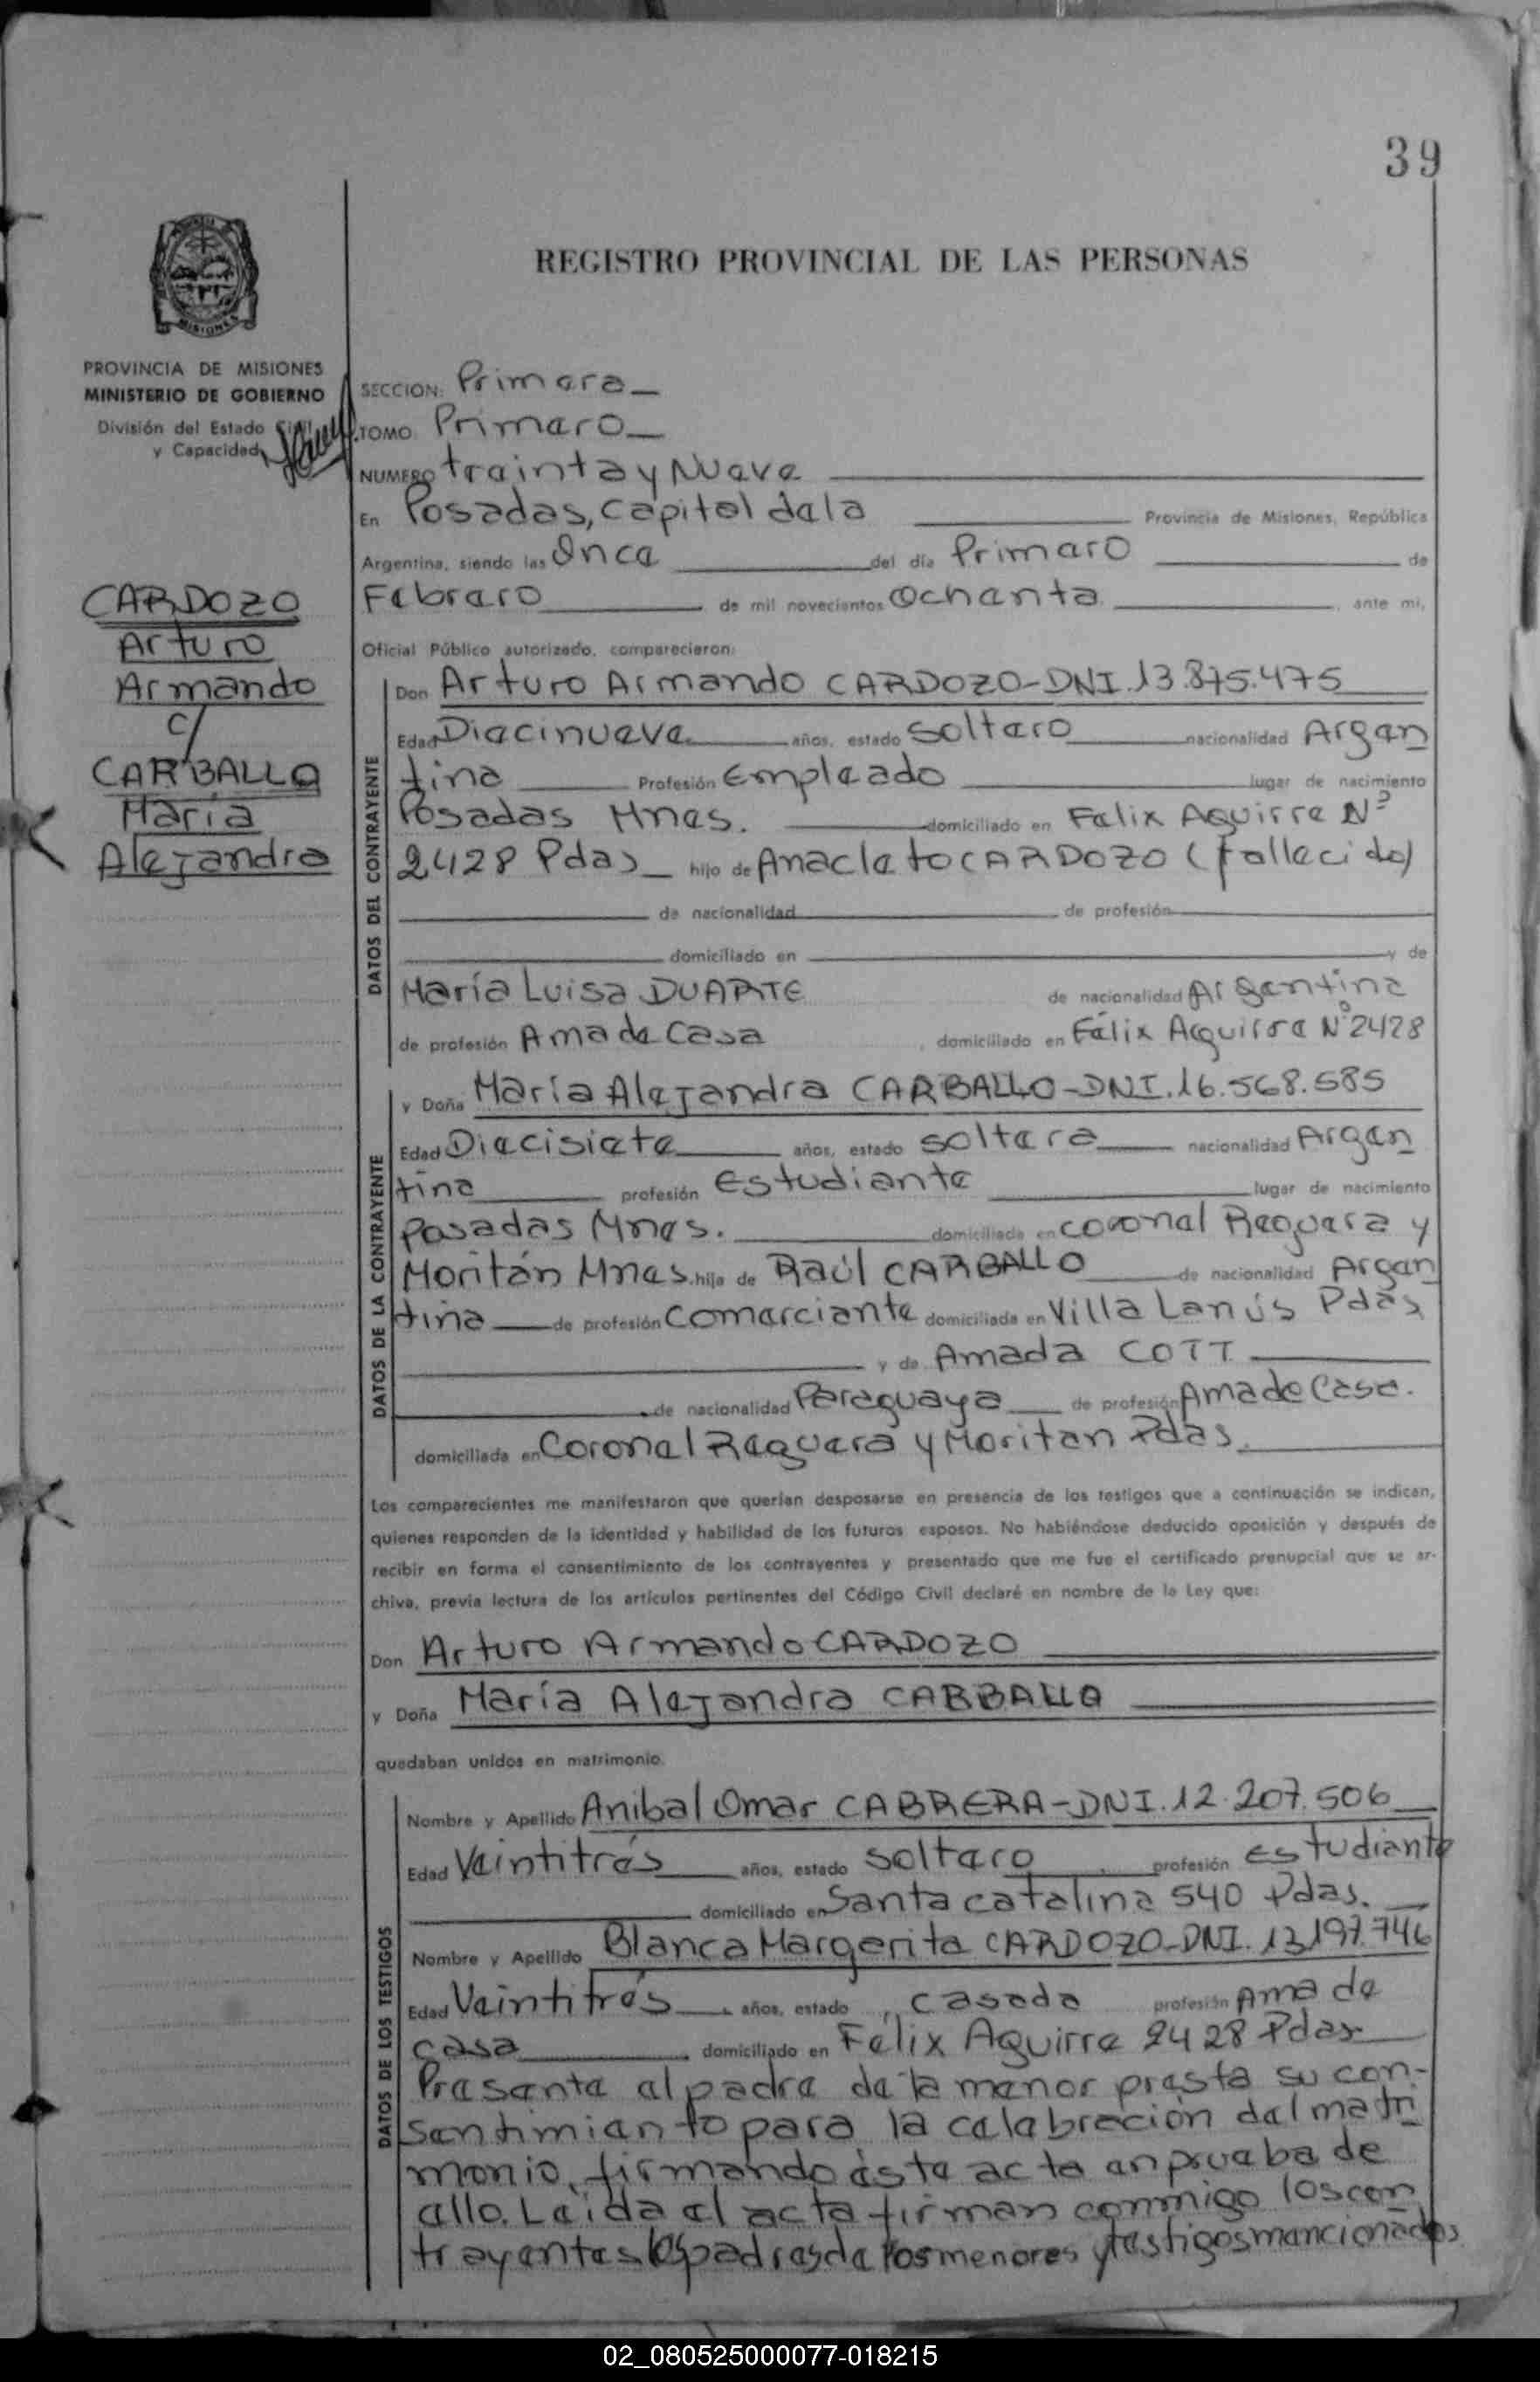 39
REGISTRO PROVINCIAL DE LAS PERSONAS
MISIONES
PROVINCIA DE MISIONES
MINISTERIO DE GOBIERNO
División del Estado Civil
y Capacidad
CARDOZO
Arturo
Armando
c/
CARBALLO
María
Alejandra
SECCION: Primera
TOMO: Primero
NUMERO treinta y Nueve
En Posadas, Capital de la Provincia de Misiones, República
Argentina, siendo las Once del día Primero de
Febrero de mil novecientos Ochenta, ante mi,
Oficial Público autorizado, comparecieron:
DATOS DEL CONTRAYENTE
Don Arturo Armando CARDOZO-DNI.13.875.475
Edad Diecinueve años, estado soltero nacionalidad Argen
tina Profesión Empleado lugar de nacimiento
Posadas Mnes. domiciliado en Felix Aguirre Nº
2428 Pdas hijo de Anacleto CARDOZO (fallecido)
de nacionalidad de profesión
domiciliado en y de
María Luisa DUARTE de nacionalidad Argentina
de profesión Ama de Casa, domiciliado en Félix Aguirre Nº 2428
DATOS DE LA CONTRAYENTE
y Doña María Alejandra CARBALLO-DNI.16.568.585
Edad Diecisiete años, estado soltera nacionalidad Argen
tina profesión Estudiante lugar de nacimiento
Posadas Mnes. domiciliada en coronel Reguera y
Moritán Mnes. hija de Raúl CARBALLO de nacionalidad Argen
tina de profesión Comerciante domiciliada en Villa Lanús Pdas
y de Amada COTT
de nacionalidad Paraguaya de profesión Ama de Casa.
domiciliada en Coronel Reguera y Moritan Pdas.
Los comparecientes me manifestaron que querían desposarse en presencia de los testigos que a continuación se indican,
quienes responden de la identidad y habilidad de los futuros esposos. No habiéndose deducido oposición y después de
recibir en forma el consentimiento de los contrayentes y presentado que me fue el certificado prenupcial que se ar-
chiva, previa lectura de los artículos pertinentes del Código Civil declaré en nombre de la Ley que:
Don Arturo Armando CARDOZO
y Doña María Alejandra CARBALLO
quedaban unidos en matrimonio.
DATOS DE LOS TESTIGOS
Nombre y Apellido Anibal Omar CABRERA-DNI.12.207.506
Edad Veintitrés años, estado soltero profesión estudiante
domiciliado en Santa Catalina 540 Pdas.
Nombre y Apellido Blanca Margarita CARDOZO-DNI.13197.746
Edad Veintitrés años, estado casada profesión Ama de
casa domiciliado en Félix Aguirre 2428 Pdas
Presente el padre de la menor presta su con-
sentimiento para la celebración del matri
monio, firmando ésta acta en prueba de
ello. Leída el acta firman conmigo los con
trayentes los padres de los menores y testigos mencionados
02_080525000077-018215